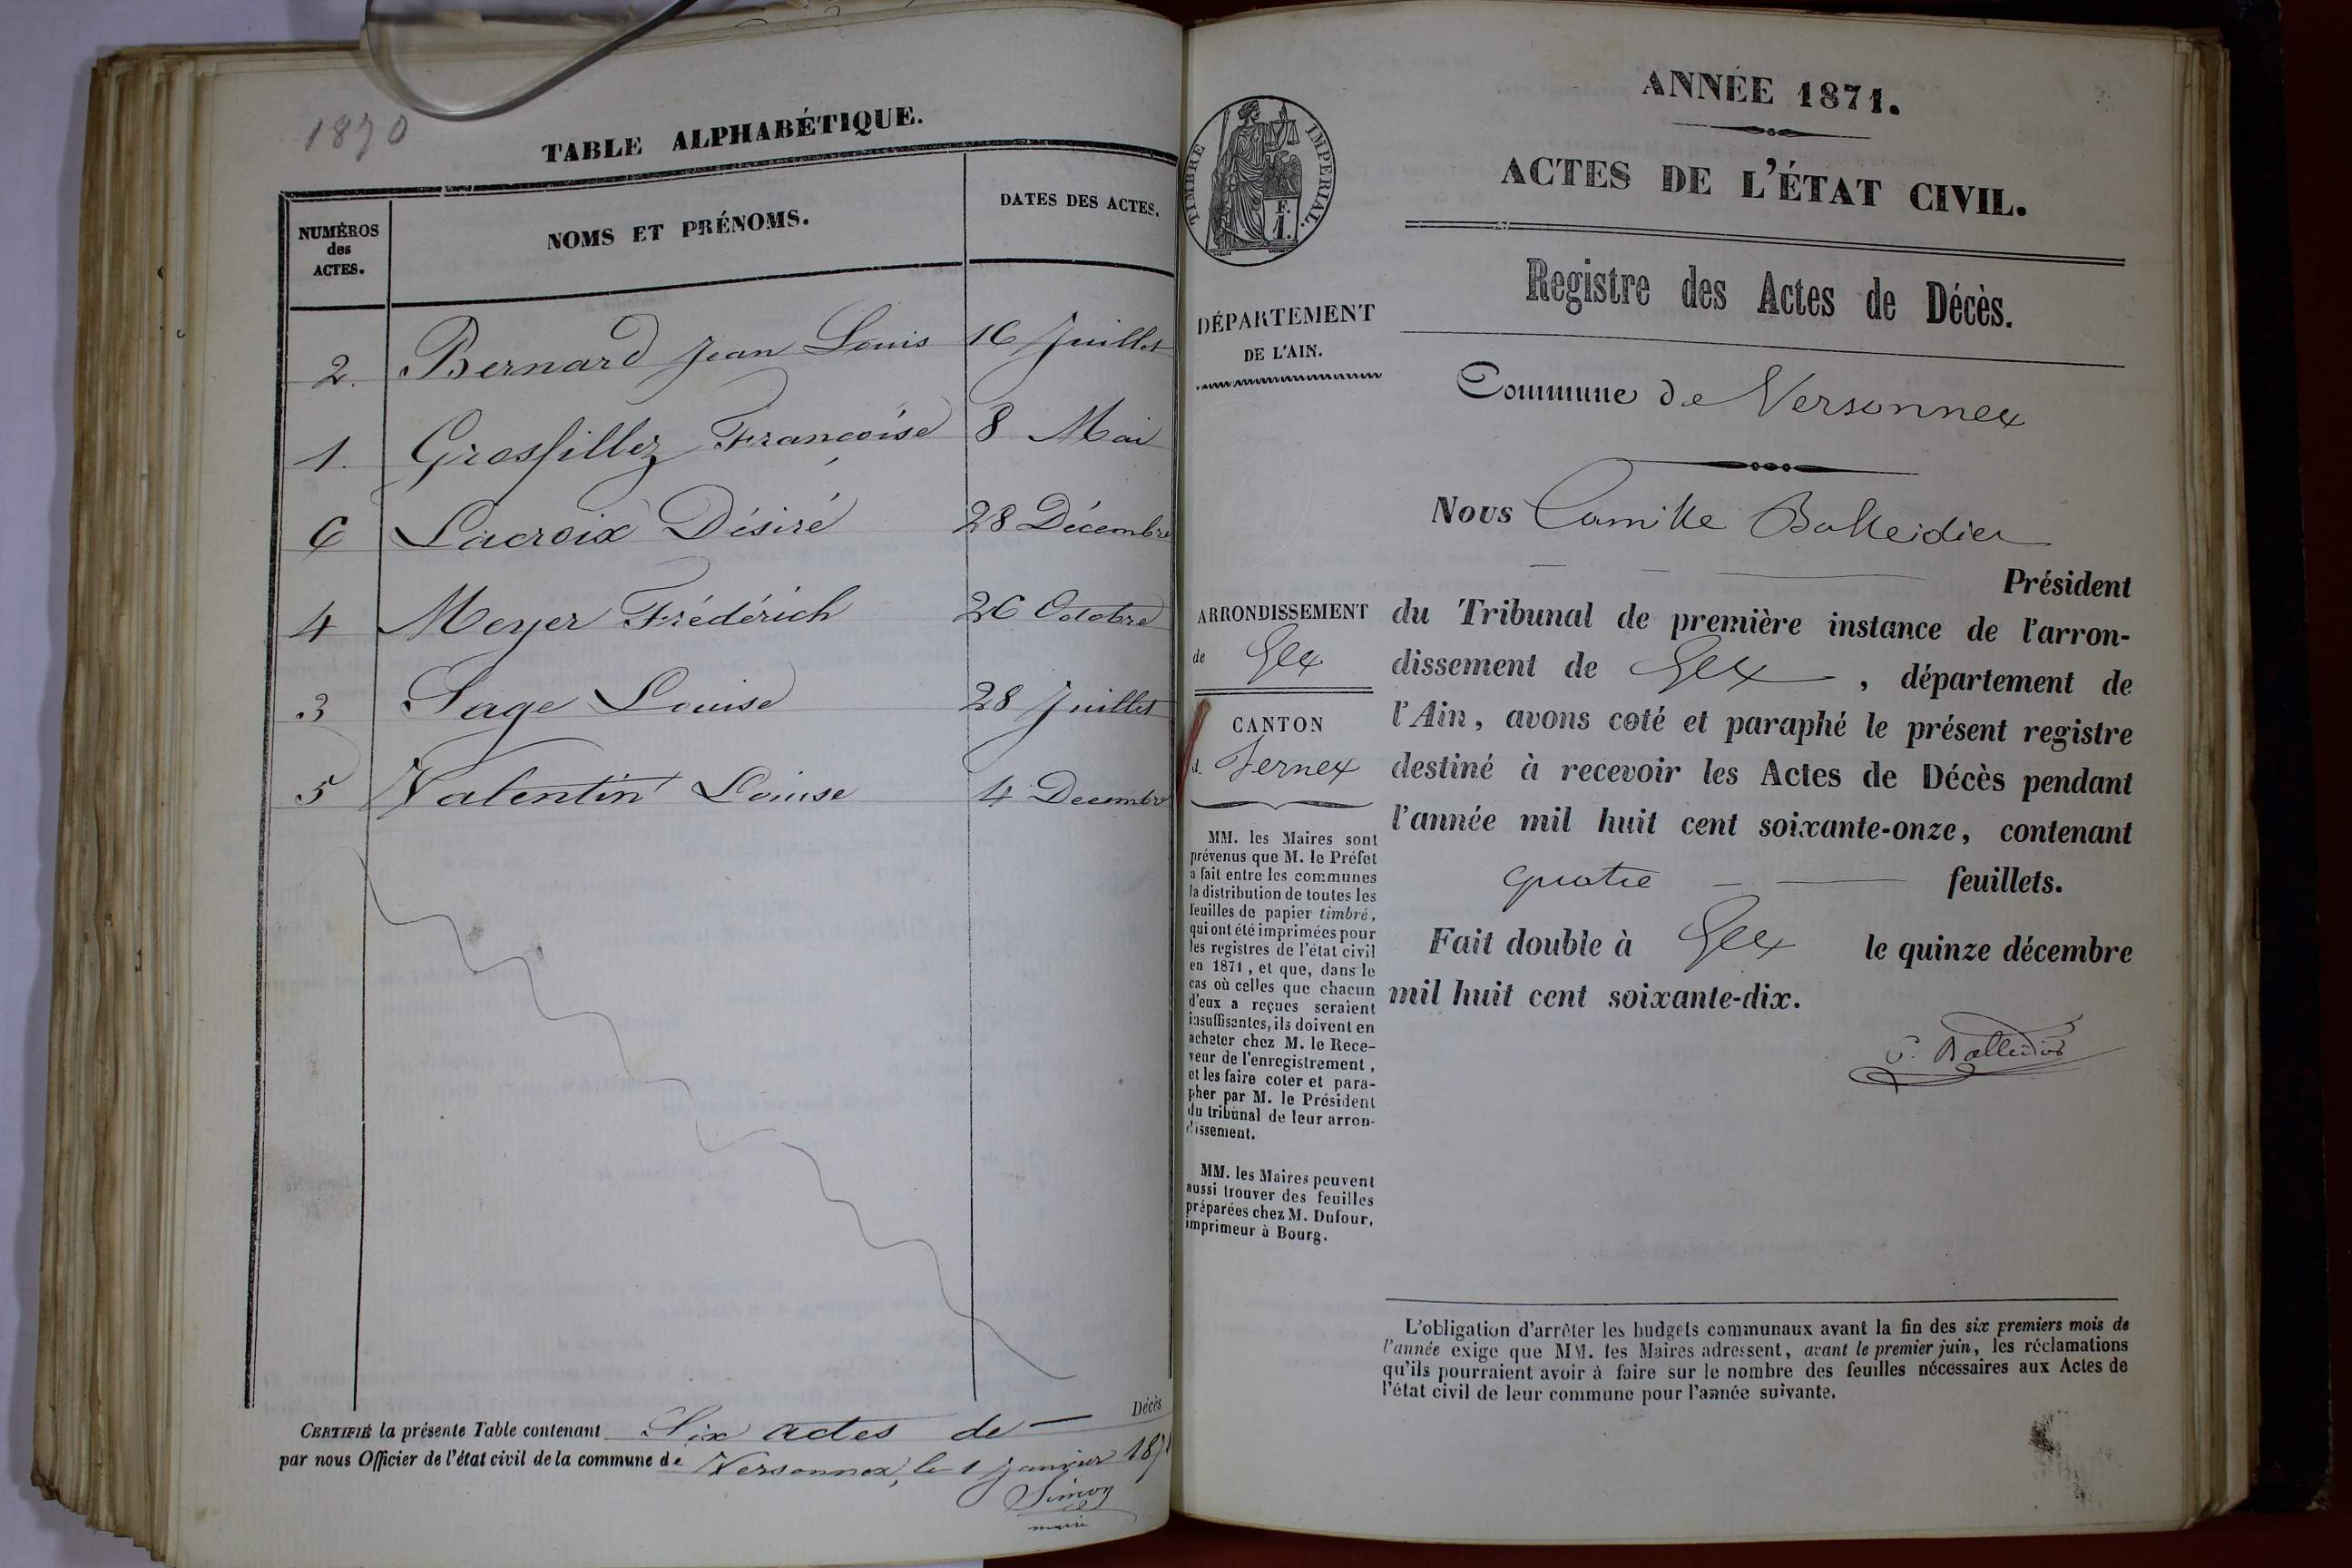 1870
TABLE ALPHABÉTIQUE.
NUMÉROS
des
ACTES.
NOMS ET PRÉNOMS.
DATES DES ACTES.
2. Bernard Jean Louis 16 Juillet
1. Grosfillez Françoise 8 Mai
6 Lacroix Désiré 28 Décembre
4 Meyer Frédérich 26 Octobre
3 Sage Louise 28 Juillet
5 Valentin Louise 4 Decembre
Décès
CERTIFIÉ la présente Table contenant Six actes de
par nous Officier de l'état civil de la commune de Versonnex, le 1 Janvier 1871
Simon
maire
TIMBRE IMPÉRIAL.
F.
1.
DÉPARTEMENT
DE L'AIN.
ARRONDISSEMENT
de Gex
CANTON
d. Fernex
MM. les Maires sont
prévenus que M. le Préfet
a fait entre les communes
la distribution de toutes les
feuilles de papier timbré,
qui ont été imprimées pour
les registres de l'état civil
en 1871, et que, dans le
cas où celles que chacun
d'eux a reçues seraient
insuffisantes, ils doivent en
acheter chez M. le Rece-
veur de l'enregistrement,
et les faire coter et para-
pher par M. le Président
du tribunal de leur arron-
dissement.
MM. les Maires peuvent
aussi trouver des feuilles
préparées chez M. Dufour,
imprimeur à Bourg.
ANNÉE 1871.
ACTES DE L'ÉTAT CIVIL.
Registre des Actes de Décès.
Commune de Versonnex
Nous Camille Balleidier
Président
du Tribunal de première instance de l'arron-
dissement de Gex, département de
l'Ain, avons coté et paraphé le présent registre
destiné à recevoir les Actes de Décès pendant
l'année mil huit cent soixante-onze, contenant
quatre feuillets.
Fait double à Gex le quinze décembre
mil huit cent soixante-dix.
C. Balleidier
L'obligation d'arrêter les budgets communaux avant la fin des six premiers mois de
l'année exige que MM. les Maires adressent, avant le premier juin, les réclamations
qu'ils pourraient avoir à faire sur le nombre des feuilles nécessaires aux Actes de
l'état civil de leur commune pour l'année suivante.